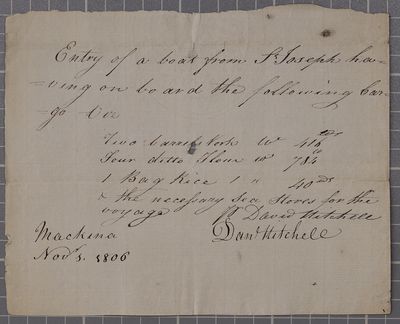 Entry of a boat from St. Joseph ha-
-ving on board the following Car-
-go viz
Two barrels Pork Wt 416 lbs
Four ditto Flour wt 784 do
1 Bag Rice 1 " 40 lbs
& the necessary Sea Stores for the
voyage pr David Mitchell
Danl Mitchell
Mackina
Novr 1. 1806